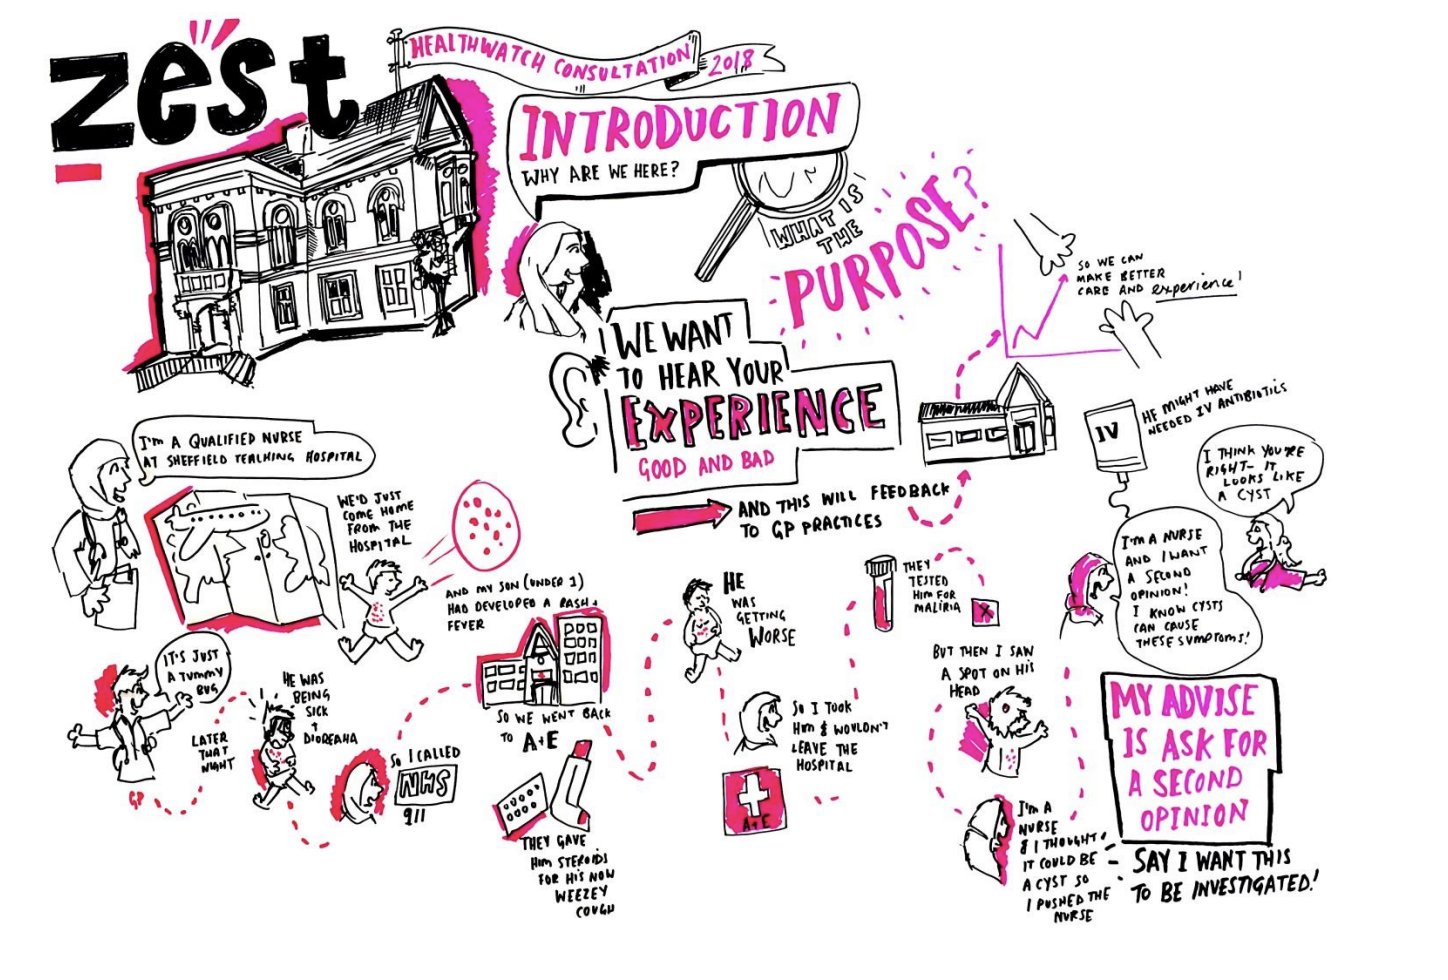 zest
HEALTHWATCH CONSULTATION 2018
INTRODUCTION
WHY ARE WE HERE?
WHAT IS
THE
PURPOSE?
SO WE CAN
MAKE BETTER
CARE AND experience!
WE WANT
TO HEAR YOUR
EXPERIENCE
GOOD AND BAD
AND THIS WILL FEEDBACK
TO GP PRACTICES
I'M A QUALIFIED NURSE
AT SHEFFIELD TEACHING HOSPITAL
WE'D JUST
COME HOME
FROM THE
HOSPITAL
AND MY SON (UNDER 1)
HAD DEVELOPED A RASH +
FEVER
IT'S JUST
A TUMMY
BUG
GP
LATER
THAT
NIGHT
HE WAS
BEING
SICK
+
DIOREAHA
SO I CALLED
NHS
911
SO WE WENT BACK
TO A+E
THEY GAVE
HIM STEROIDS
FOR HIS NOW
WEEZEY
COUGH
HE
WAS
GETTING
WORSE
SO I TOOK
HIM & WOULDN'T
LEAVE THE
HOSPITAL
A+E
THEY
TESTED
HIM FOR
MALIRIA
X
BUT THEN I SAW
A SPOT ON HIS
HEAD
I'M A
NURSE
& I THOUGHT
IT COULD BE
A CYST SO
I PUSHED THE
NURSE
I'M A NURSE
AND I WANT
A SECOND
OPINION!
I KNOW CYSTS
CAN CAUSE
THESE SYMPTOMS!
I THINK YOU'RE
RIGHT- IT
LOOKS LIKE
A CYST
IV
HE MIGHT HAVE
NEEDED IV ANTIBIOTICS
MY ADVISE
IS ASK FOR
A SECOND
OPINION
- SAY I WANT THIS
TO BE INVESTIGATED!